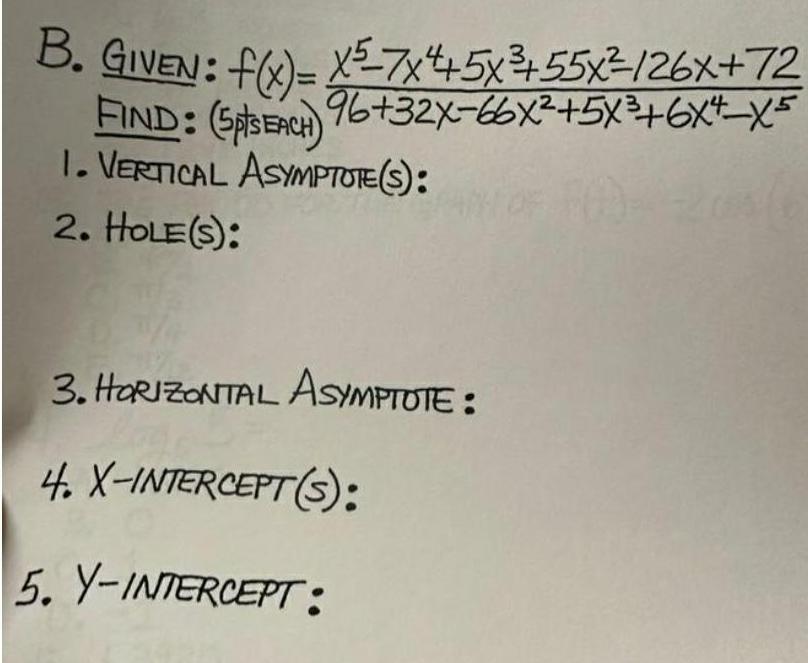 B. GIVEN: f(x)= x⁵-7x⁴+5x³+55x²-126x+72
FIND: (5pts EACH) 96+32x-66x²+5x³+6x⁴-x⁵
1. VERTICAL ASYMPTOTE(S):
2. HOLE(S):
3. HORIZONTAL ASYMPTOTE:
4. X-INTERCEPT(S):
5. Y-INTERCEPT: